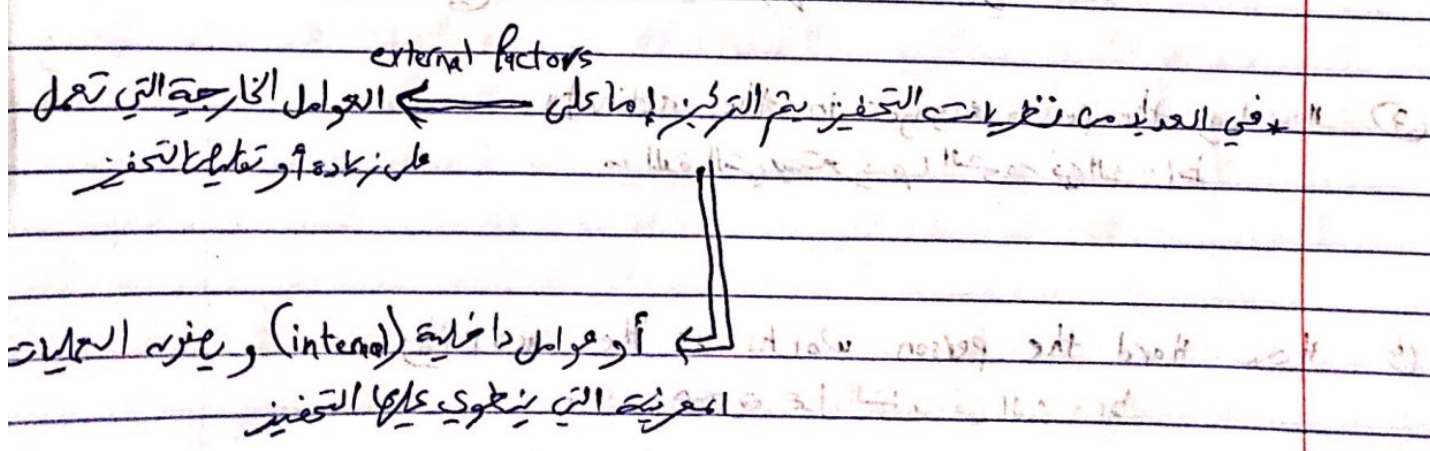 external factors
* في العديد من نظريات التحفيز يتم التركيز إما على ⟸ العوامل الخارجية التي تعمل
على زيادة أو تقليل التحفيز
أو عوامل داخلية (internal) و العمليات
المعرفية التي ينطوي عليها التحفيز